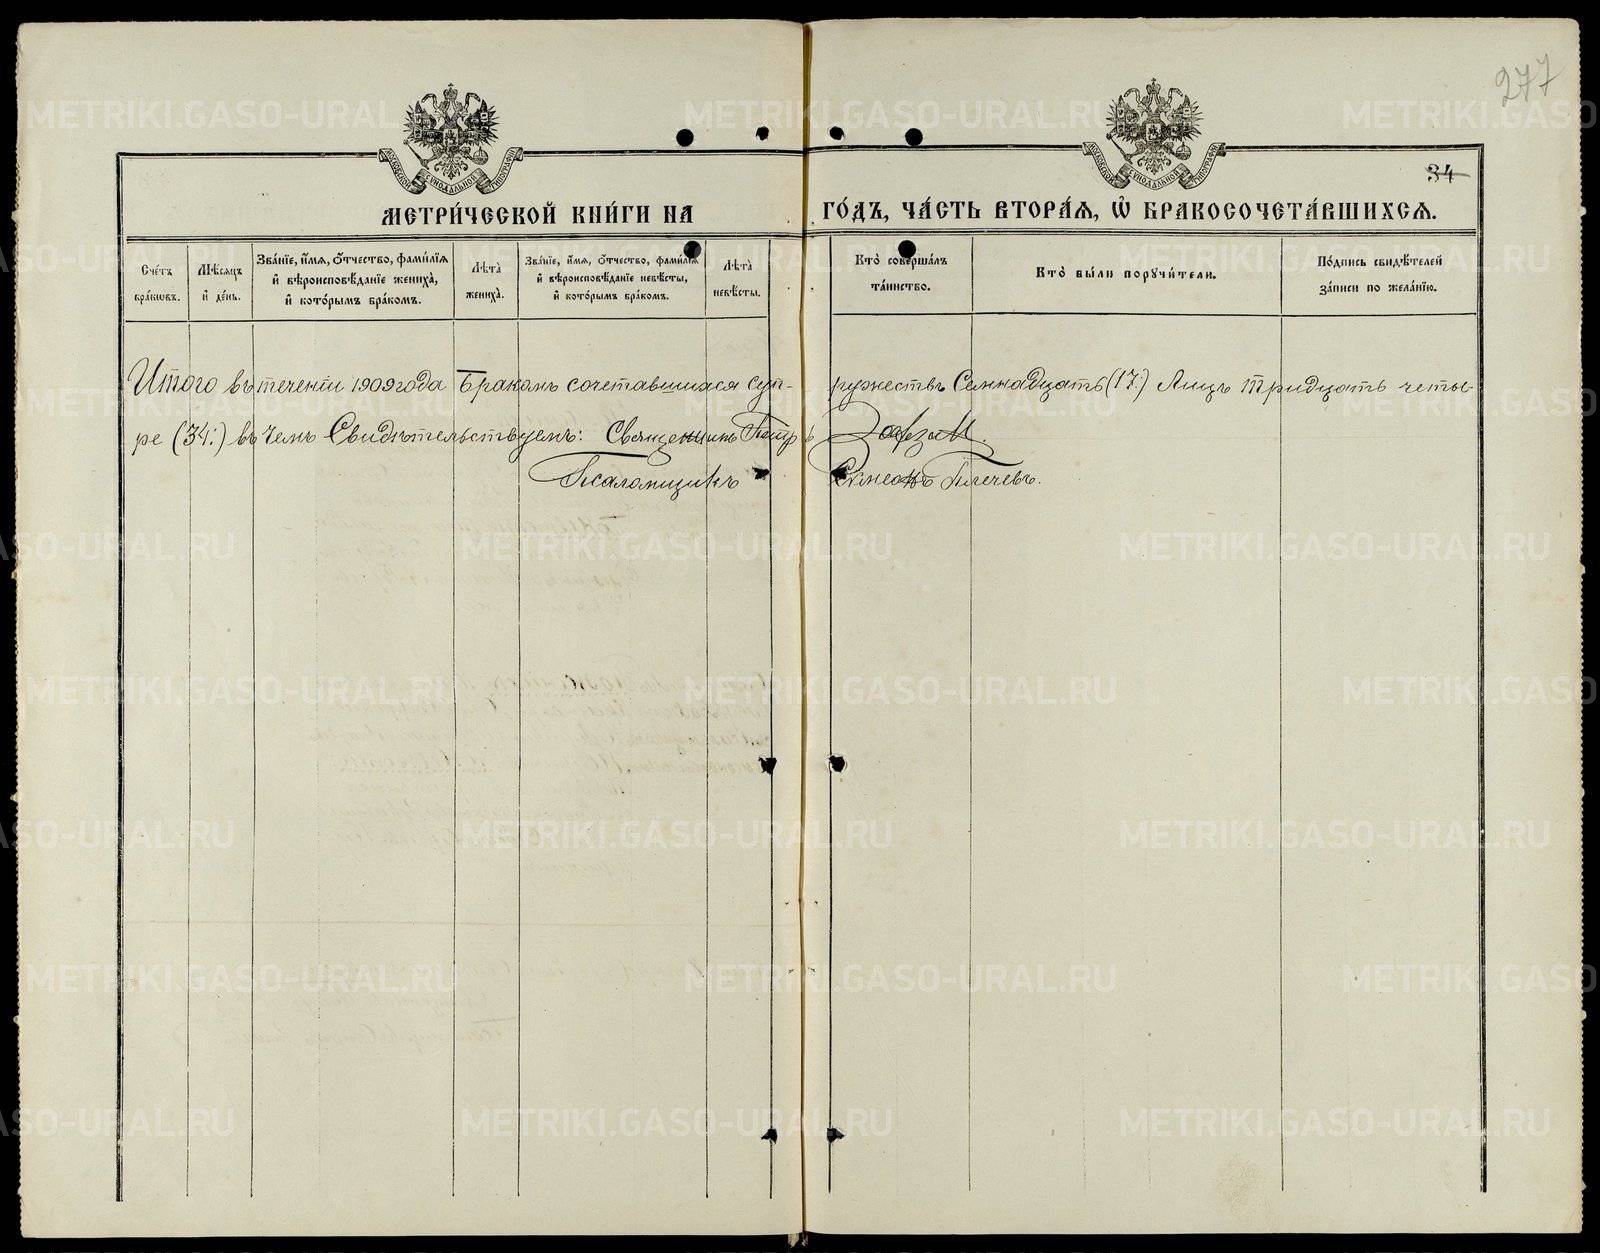 277
34
МЕТРИ́ЧЕСКОЙ КНИ́ГИ НА ГО́ДЪ, ЧА́СТЬ ВТОРА́Я, Ѡ҆ БРАКОСОЧЕТА́ВШИХСЯ.
Сче́тъ бра́кѡвъ.
Мѣ́сяцъ и҆ де́нь.
Зва́нїе, и҆́мя, о҆́тчество, фами́лїя и҆ вѣроисповѣ́данїе жениха̀, и҆ кото́рымъ бра́комъ.
Лѣ́та жениха̀.
Зва́нїе, и҆́мя, о҆́тчество, фами́лїя и҆ вѣроисповѣ́данїе невѣ́сты, и҆ кото́рымъ бра́комъ.
Лѣ́та невѣ́сты.
Кто̀ соверша́лъ та́инство.
Кто̀ бы́ли порꙋчи́тели.
По́дпись свидѣ́телей за́писи по жела́нїю.
Итого въ теченіи 1909 года Бракамъ сочетавшихся суп-ружествъ Семнадцать (17:) Лицъ Тридцать четы-
ре (34:) въ чемъ Свидѣтельствуемъ: Священникъ Петръ
Псаломщикъ Симеонъ Плечевъ.
МОСКОВСКОЙ СѴНОДАЛЬНОЙ ТИПОГРАФІИ
МОСКОВСКОЙ СѴНОДАЛЬНОЙ ТИПОГРАФІИ
METRIKI.GASO-URAL.RU